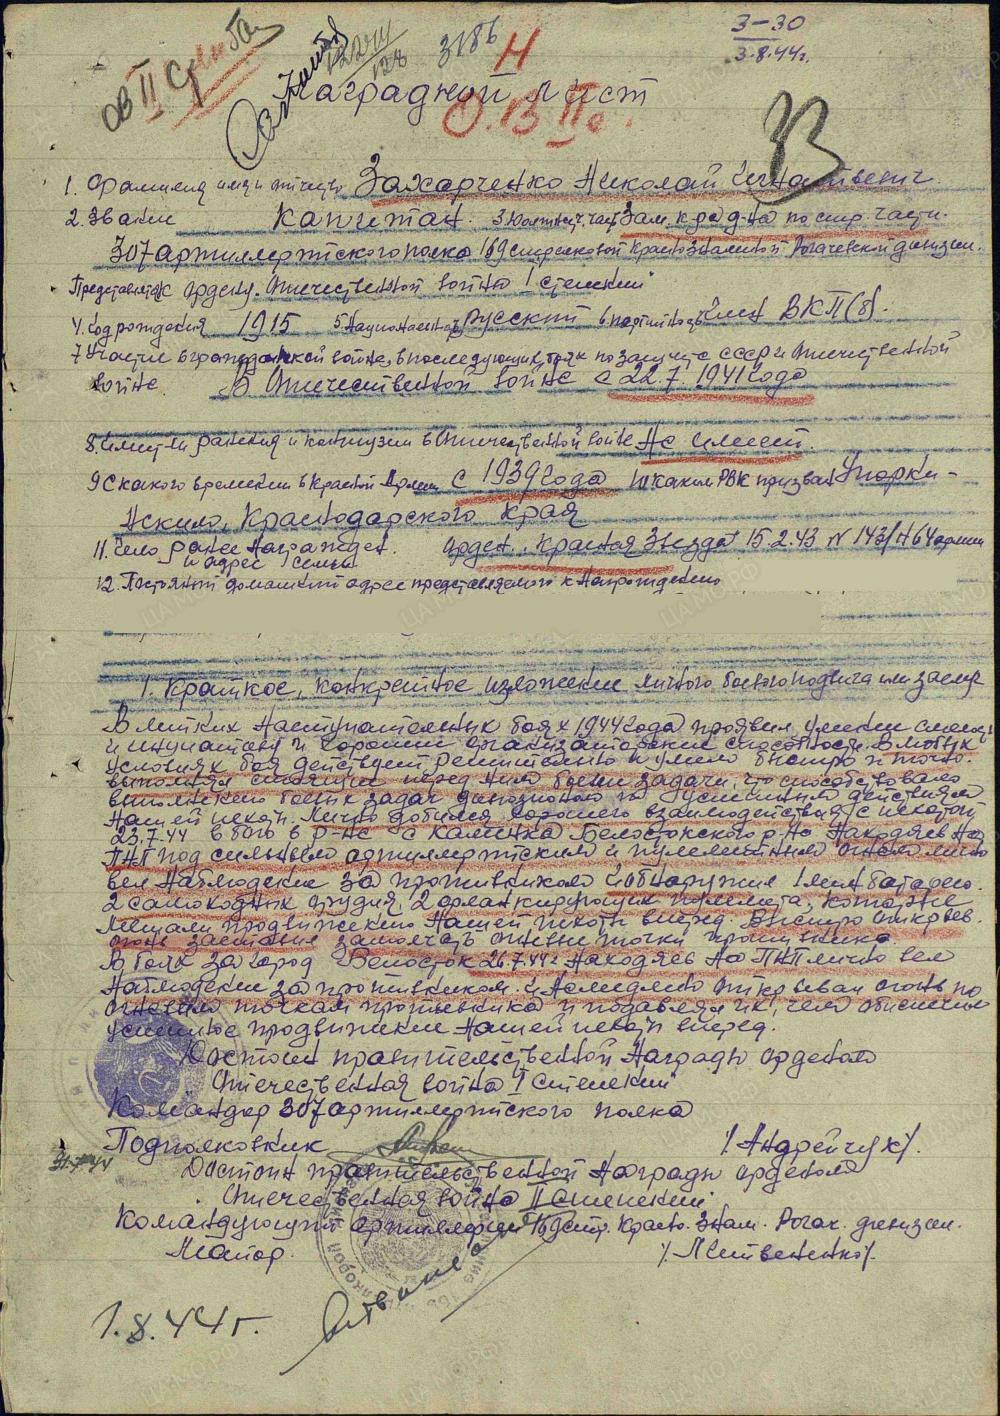 3-30
3.8.44г.
3186
Н
Наградной лист
О.В IIс.
33
1. Фамилия имя и отчество Захарченко Николай Игнатьевич.
2. Звание капитан. 3 Должност. част Зам. к-ра д-на по стр. части.
307 артиллерийского полка 169 стрелковой Краснознаменной Рогачевской дивизии.
Представляется к ордену "Отечественной войны I степени"
4. год рождения 1915 5 Национальность Русский 6 партийность член ВКП(б).
7 Участие в гражданской войне, в последующих боях по защите СССР и Отечественной
войне. В Отечественной войне с 22.7.1941 года
8. имеет ли ранения и контузии в Отечественной войне Не имеет.
9 С какого времени в Красной Армии с 1939 года 10 каким РВК призван
Краснодарского края
11. Чем ранее награжден. Орден "Красная Звезда" 15.2.43 N 143/Н 64 армии
и адрес семьи
12. Постоянный домашний адрес представляемого к награждению
1. Краткое, конкретное изложение личного боевого подвига или заслуг
В летних наступательных боях 1944 года проявил умение смелость
и инициативу и хорошие организаторские способности. В любых
условиях боя действует решительно и умело быстро и точно.
выполняя стоящие перед ним боевые задачи, что способствовало
выполнению боевых задач дивизионом и успешным действиям
нашей пехоты. Лично добился хорошего взаимодействия с пехотой
23.7.44 в бою в р-не с Каменка Белостокского р-на находясь на
ПНП под сильным артиллерийским и пулеметным огнем лично
вел наблюдение за противником и обнаружил 1 мин батарею.
2 самоходных орудия, 2 фланкирующих пулемета, которые
мешали продвижению нашей пехоты вперед. Быстро открыв
огонь заставил замолчать огневые точки противника.
В боях за город Белосток 26.7.44г находясь на ПНП лично вел
наблюдение за противником. и немедленно открывал огонь по
огневым точкам противника и подавлял их, чем обеспечил
успешное продвижение нашей пехоты вперед.
Достоин правительственной награды ордена
"Отечественная война I степени"
Командир 307 артиллерийского полка
Подполковник /Андрейчук/.
31.7.44
Достоин правительственной награды ордена
"Отечественная война II степени".
Командующий артиллерией 169 стр. Красн. Знам. Рогач. дивизии.
Майор. /Литвиненко/.
1.8.44г.